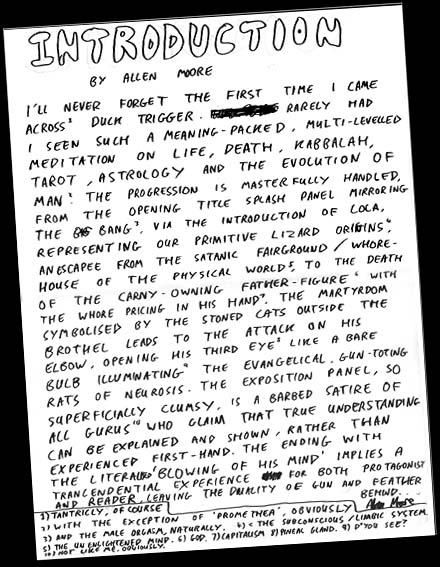 INTRODUCTION
BY ALLEN MOORE
I'LL NEVER FORGET THE FIRST TIME I CAME
ACROSS¹ DUCK TRIGGER. RARELY HAD
I SEEN SUCH A MEANING-PACKED, MULTI-LEVELLED
MEDITATION ON LIFE, DEATH, KABBALAH,
TAROT, ASTROLOGY AND THE EVOLUTION OF
MAN². THE PROGRESSION IS MASTERFULLY HANDLED,
FROM THE OPENING TITLE SPLASH PANEL MIRRORING
THE BIG BANG³, VIA THE INTRODUCTION OF LOLA,
REPRESENTING OUR PRIMITIVE LIZARD ORIGINS⁴,
AN ESCAPEE FROM THE SATANIC FAIRGROUND/WHORE-
HOUSE OF THE PHYSICAL WORLD⁵, TO THE DEATH
OF THE CARNY-OWNING FATHER-FIGURE⁶ WITH
THE WHORE PRICING IN HIS HAND⁷. THE MARTYRDOM
SYMBOLISED BY THE STONED CATS OUTSIDE THE
BROTHEL LEADS TO THE ATTACK ON HIS
ELBOW, OPENING HIS THIRD EYE⁸ LIKE A BARE
BULB ILLUMINATING⁹ THE EVANGELICAL, GUN-TOTING
RATS OF NEUROSIS. THE EXPOSITION PANEL, SO
SUPERFICIALLY CLUMSY, IS A BARBED SATIRE OF
ALL GURUS¹⁰ WHO CLAIM THAT TRUE UNDERSTANDING
CAN BE EXPLAINED AND SHOWN, RATHER THAN
EXPERIENCED FIRST-HAND. THE ENDING WITH
THE LITERAL 'BLOWING OF HIS MIND' IMPLIES A
TRANCENDENTIAL EXPERIENCE FOR BOTH PROTAGONIST
AND READER, LEAVING THE DUALITY OF GUN AND FEATHER
BEHIND...
Allen Moore
1) TANTRICLY, OF COURSE
2) WITH THE EXCEPTION OF 'PROMETHEA', OBVIOUSLY
3) AND THE MALE ORGASM, NATURALLY. 4) < THE SUBCONSCIOUS/LIMBIC SYSTEM.
5) THE UNENLIGHTENED MIND. 6) GOD. 7) CAPITALISM 8) PINEAL GLAND. 9) D'YOU SEE?
10) NOT LIKE ME, OBVIOUSLY.